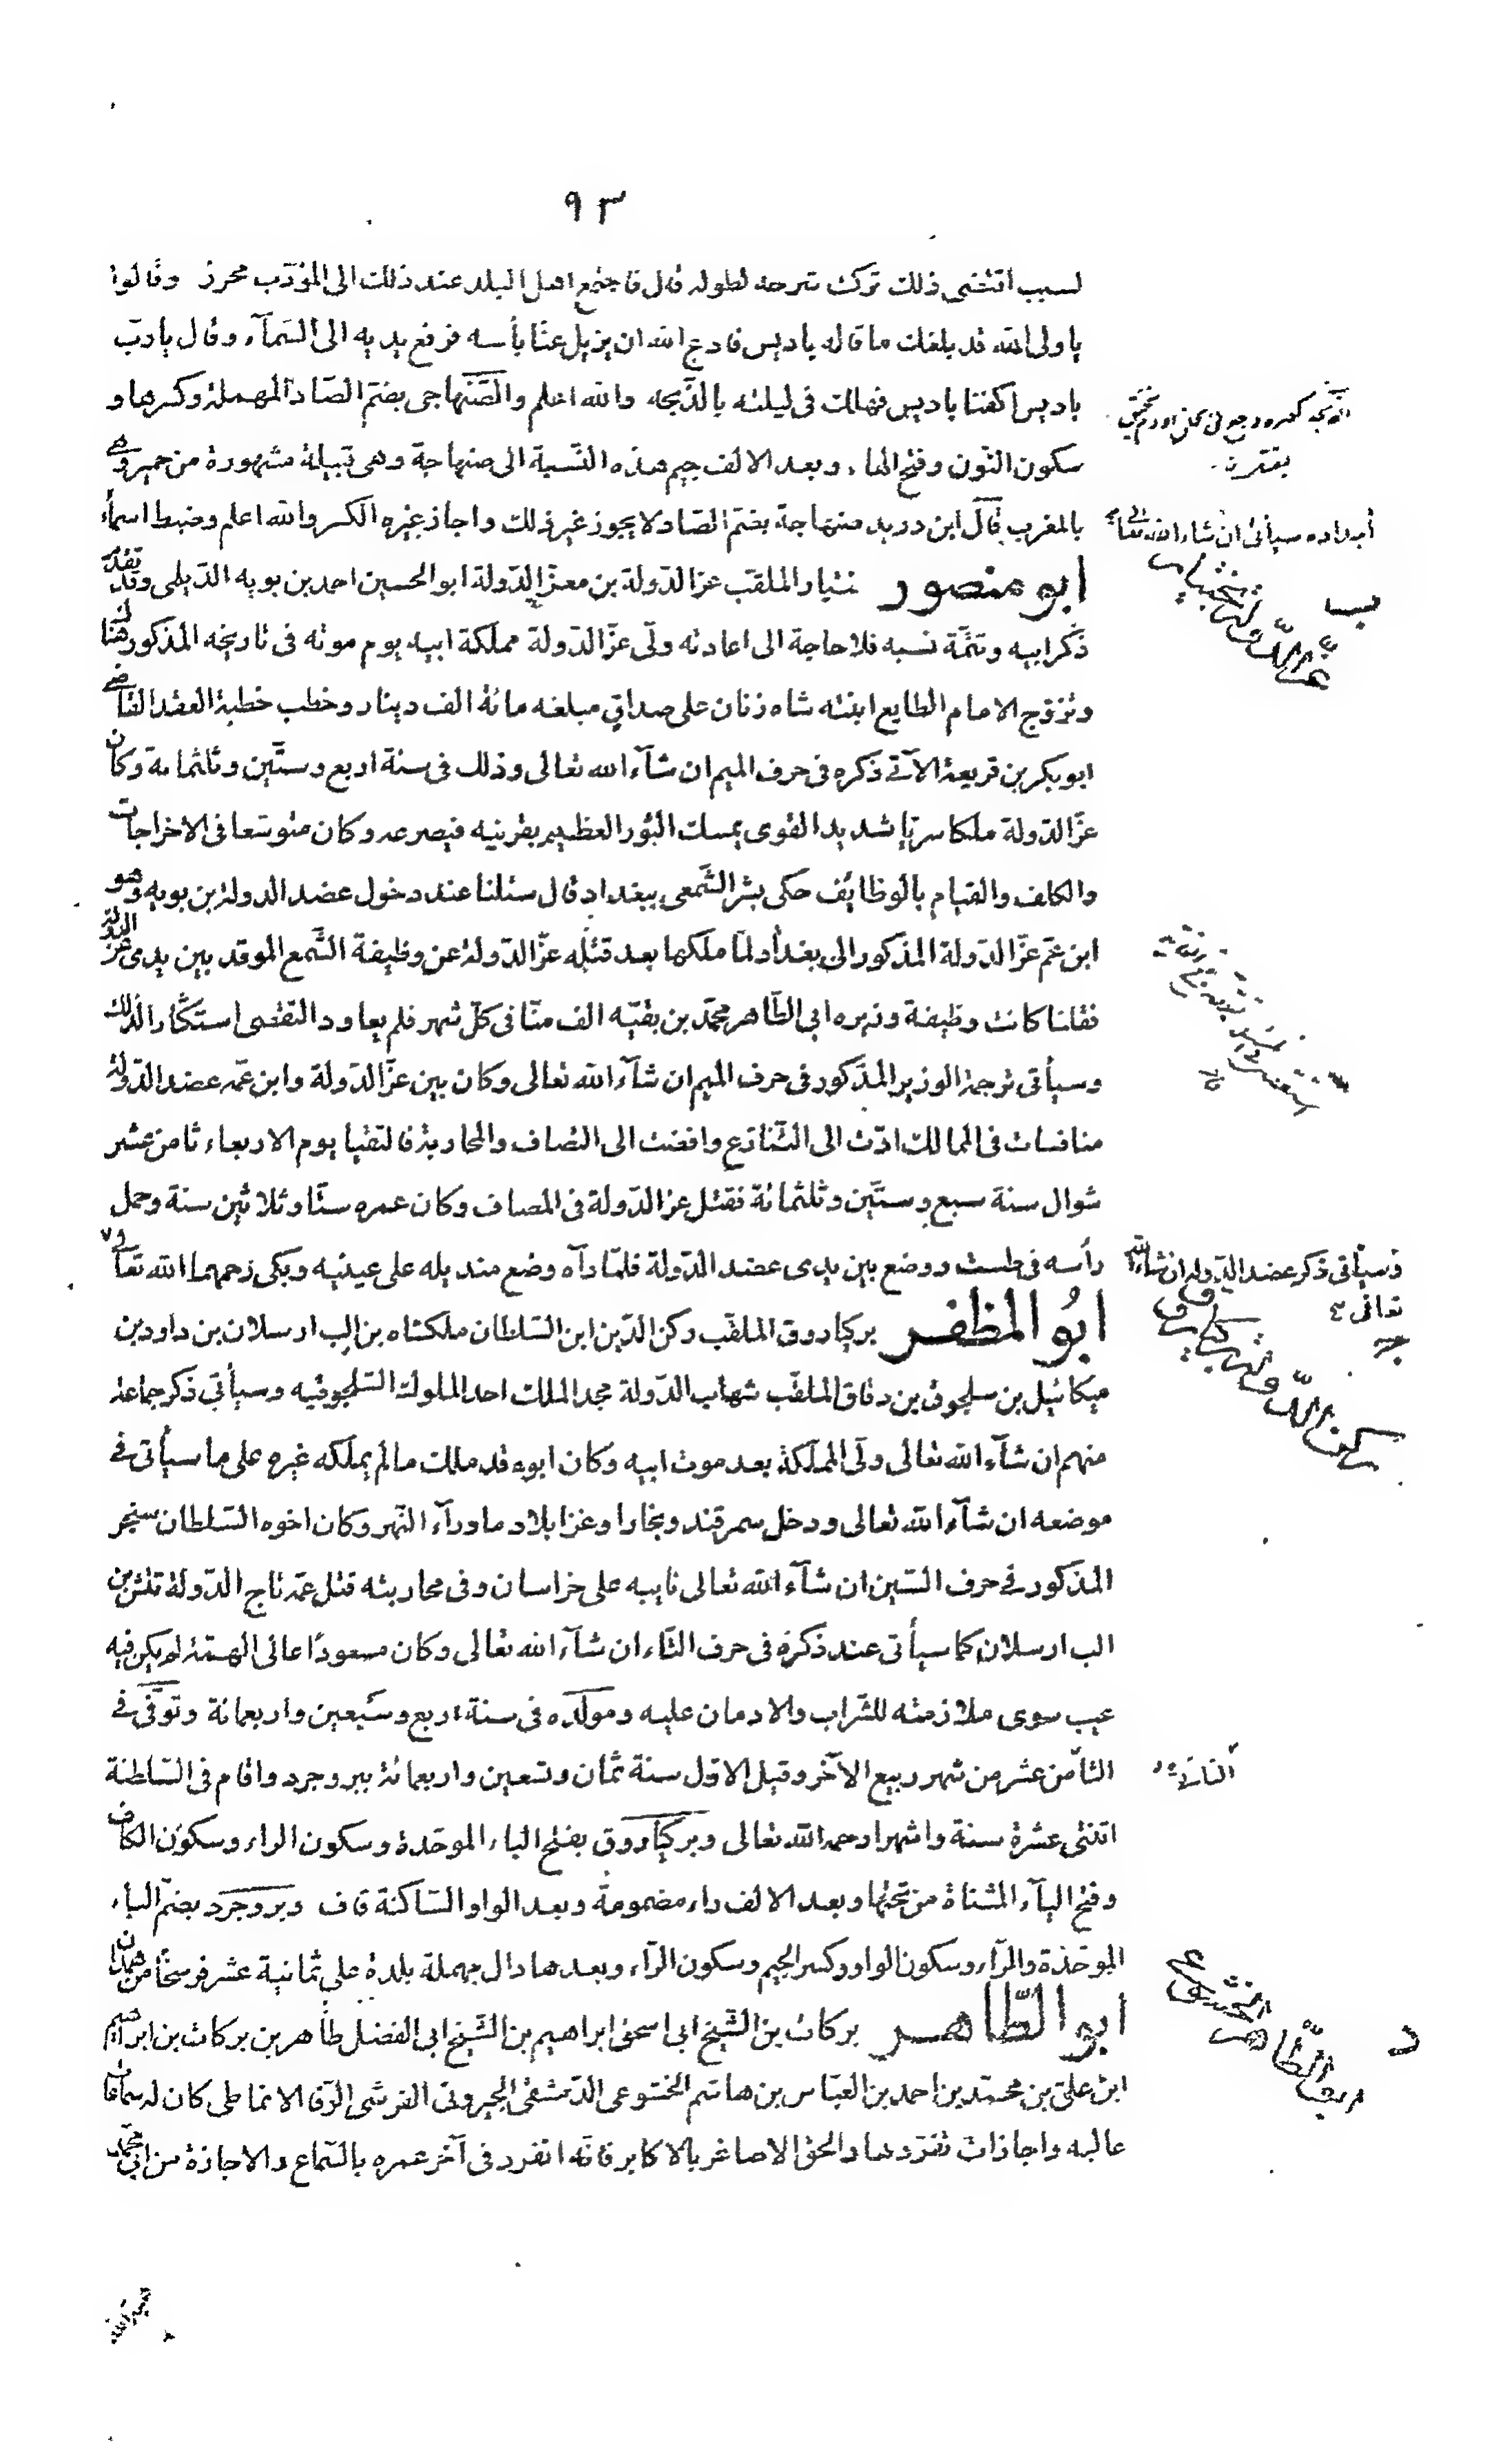 ٩٣
لسبب اقتضى ذلك ترك شرحه لطوله قال فاجتمع اهل البلد عند ذلك الى المؤدّب محرز وقالوا
يا ولى الله قد بلغك ما قاله باديس فادع الله ان يزيل عنّا بأسه فرفع يديه الى السّمآء وقال يا ربّ
باديس اكفنا باديس فهلك فى ليلته بالذّبحه والله اعلم والصّنهاجى بضمّ الصّاد المهملة وكسرها و
سكون النّون وفتح الهاء وبعد الالف جيم هذه النّسبة الى صنهاجة وهى قبيلة مشهورة من حمير وهى
بالمغرب قال ابن دريد صنهاجة بضمّ الصّاد لا يجوز غير ذلك واجاز غيره الكسر والله اعلم وضبط اسمآء
أجداده سيأتى ان شاء الله تعالى
ابو منصور بختيار الملقّب عز الدّولة بن معزّ الدّولة ابو الحسين احمد بن بويه الدّيلمى وقد تقدّم
ب
عزّ الدّولة بختيار
ذكر ابيه وتتمّة نسبه فلا حاجة الى اعادته ولّى عزّ الدّولة مملكة ابيه يوم موته فى تاريخه المذكور هناك
وتزوّج الامام الطايع ابنته شاه زنان على صداق مبلغه مائة الف دينار وخطب خطبة العقد القاضى
ابو بكر بن قريعة الآتى ذكره فى حرف الميم ان شآء الله تعالى وذلك فى سنة اربع وستّين وثلثماية وكان
عزّ الدّولة ملكا سريّا شديد القوى يمسك الثور العظيم بقرنيه فيصرعه وكان متوسّعا فى الاخراجات
والكلف والقيام بالوظائف حكى بشر الشّمعى ببغداد قال سئلنا عند دخول عضد الدولة بن بويه وهو
ابن عم عزّ الدّولة المذكور الى بغداد لمّا ملكها بعد قتله عزّ الدّولة عن وظيفة الشّمع الموقد بين يدى عز الدولة
فقلنا كانت وظيفة وزيره ابى الطّاهر محمّد بن بقيّه الف منّا فى كلّ شهر فلم يعاود التقصى استكثارا لذلك
وسيأتى ترجمة الوزير المذكور فى حرف الميم ان شآء الله تعالى وكان بين عزّ الدّولة وابن عمّه عضد الدّولة
منافسات فى الممالك ادّت الى التّنازع وافضت الى التصاف والمحاربة فالتقيا يوم الاربعاء ثامن عشر
شوال سنة سبع وستّين وثلثمائة فقتل عز الدّولة فى المصاف وكان عمره ستّا وثلاثين سنة وحمل
رأسه فى طست ووضع بين يدى عضد الدّولة فلمّا رآه وضع منديله على عينيه وبكى رحمهما الله تعالى
وسيأتى ذكر عضد الدّولة ان شاء الله
تعالى
ابو المظفر بركياروق الملقّب ركن الدّين ابن السّلطان ملكشاه بن الب ارسلان بن داود بن
ج
ركن الدّولة بركياروق
ميكائيل بن سلجوق بن دقاق الملقّب شهاب الدّولة مجد الملك احد الملوك السّلجوقيه وسيأتى ذكر جماعة
منهم ان شآء الله تعالى ولّى المملكة بعد موت ابيه وكان ابوه قد ملك ما لم يملكه غيره على ما سيأتى فى
موضعه ان شآء الله تعالى ودخل سمرقند وبخارا وغزا بلاد ما ورآء النّهر وكان اخوه السّلطان سنجر
المذكور فى حرف السّين ان شآء الله تعالى نايبه على خراسان وفى محاربته قتل عمّه تاج الدّولة تتش بن
الب ارسلان كما سيأتى عند ذكره فى حرف التّاء ان شآء الله تعالى وكان مسعودًا عالى الهمّة لم يكن فيه
عيب سوى ملازمته للشّراب والادمان عليه ومولده فى سنة اربع وسبعين واربعمائة وتوفّى فى
الثامن عشر من شهر ربيع الآخر وقيل الاوّل سنة ثمان وتسعين واربعمائة ببروجرد واقام فى السّلطنة
اثنتى عشرة سنة واشهرا رحمه الله تعالى وبركياروق بفتح الباء الموحّدة وسكون الراء وسكون الكاف
وفتح اليآء المثناة من تحتها وبعد الالف راء مضمومة وبعد الواو السّاكنة قاف وبروجرد بضمّ الباء
الموحّدة والرّاء وسكون الواو وكسر الجيم وسكون الرّاء وبعدها دال مهملة بلدة على ثمانية عشر فرسخًا من همدان
ابو الطّاهر بركات بن الشّيخ ابى اسحق ابراهيم بن الشّيخ ابى الفضل طاهر بن بركات بن ابراهيم
د
ابو الطّاهر الخشوعى
ابن على بن محمّد بن احمد بن العبّاس بن هاشم الخشوعى الدّمشقى الجيرونى القرشى الرّفا الانماطى كان له سماعات
عاليه واجازات تفرّد بها والحق الاصاغر بالاكابر فانّه انفرد فى آخر عمره بالسّماع والاجازة من ابى محمّد